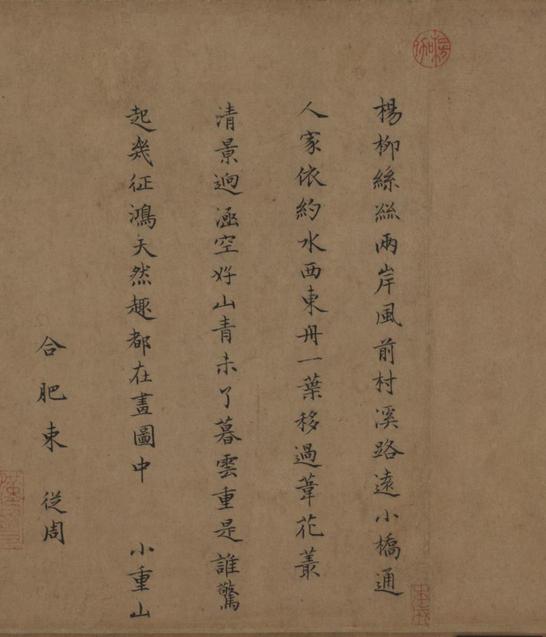 楊柳絲絲兩岸風前村溪路遠小橋通
人家依約水西東舟一葉移過葦花叢
清景迥涵空好山青未了暮雲重是誰驚
起幾征鴻天然趣都在畫圖中 小重山
合肥束 從周